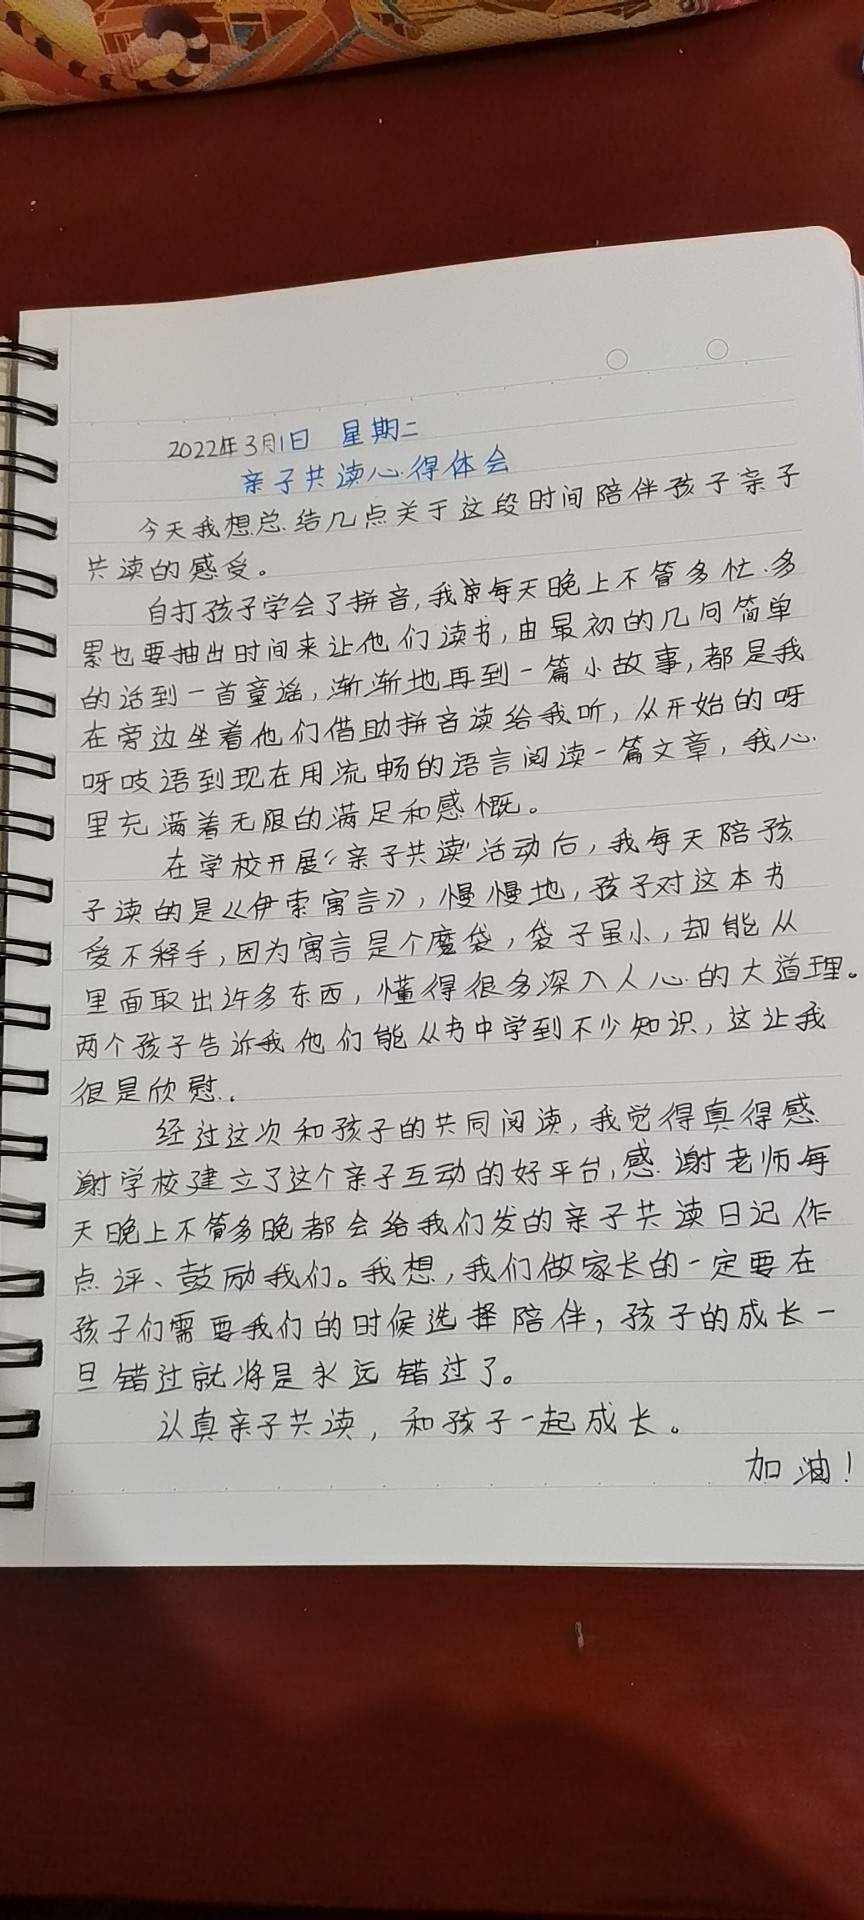 2022年3月1日 星期二
亲子共读心得体会
今天我想总结几点关于这段时间陪伴孩子亲子
共读的感受。
自打孩子学会了拼音,我每天晚上不管多忙.多
累也要抽出时间来让他们读书,由最初的几句简单
的话到一首童谣,渐渐地再到一篇小故事,都是我
在旁边坐着他们借助拼音读给我听,从开始的呀
呀吱语到现在用流畅的语言阅读一篇文章,我心
里充满着无限的满足和感慨。
在学校开展“亲子共读”活动后,我每天陪孩
子读的是《伊索寓言》,慢慢地,孩子对这本书
爱不释手,因为寓言是个魔袋,袋子虽小,却能从
里面取出许多东西,懂得很多深入人心的大道理。
两个孩子告诉我他们能从书中学到不少知识,这让我
很是欣慰.
经过这次和孩子的共同阅读,我觉得真得感
谢学校建立了这个亲子互动的好平台,感谢老师每
天晚上不管多晚都会给我们发的亲子共读日记作
点评、鼓励我们。我想,我们做家长的一定要在
孩子们需要我们的时候选择陪伴,孩子的成长一
旦错过就将是永远错过了。
认真亲子共读,和孩子一起成长。
加油!